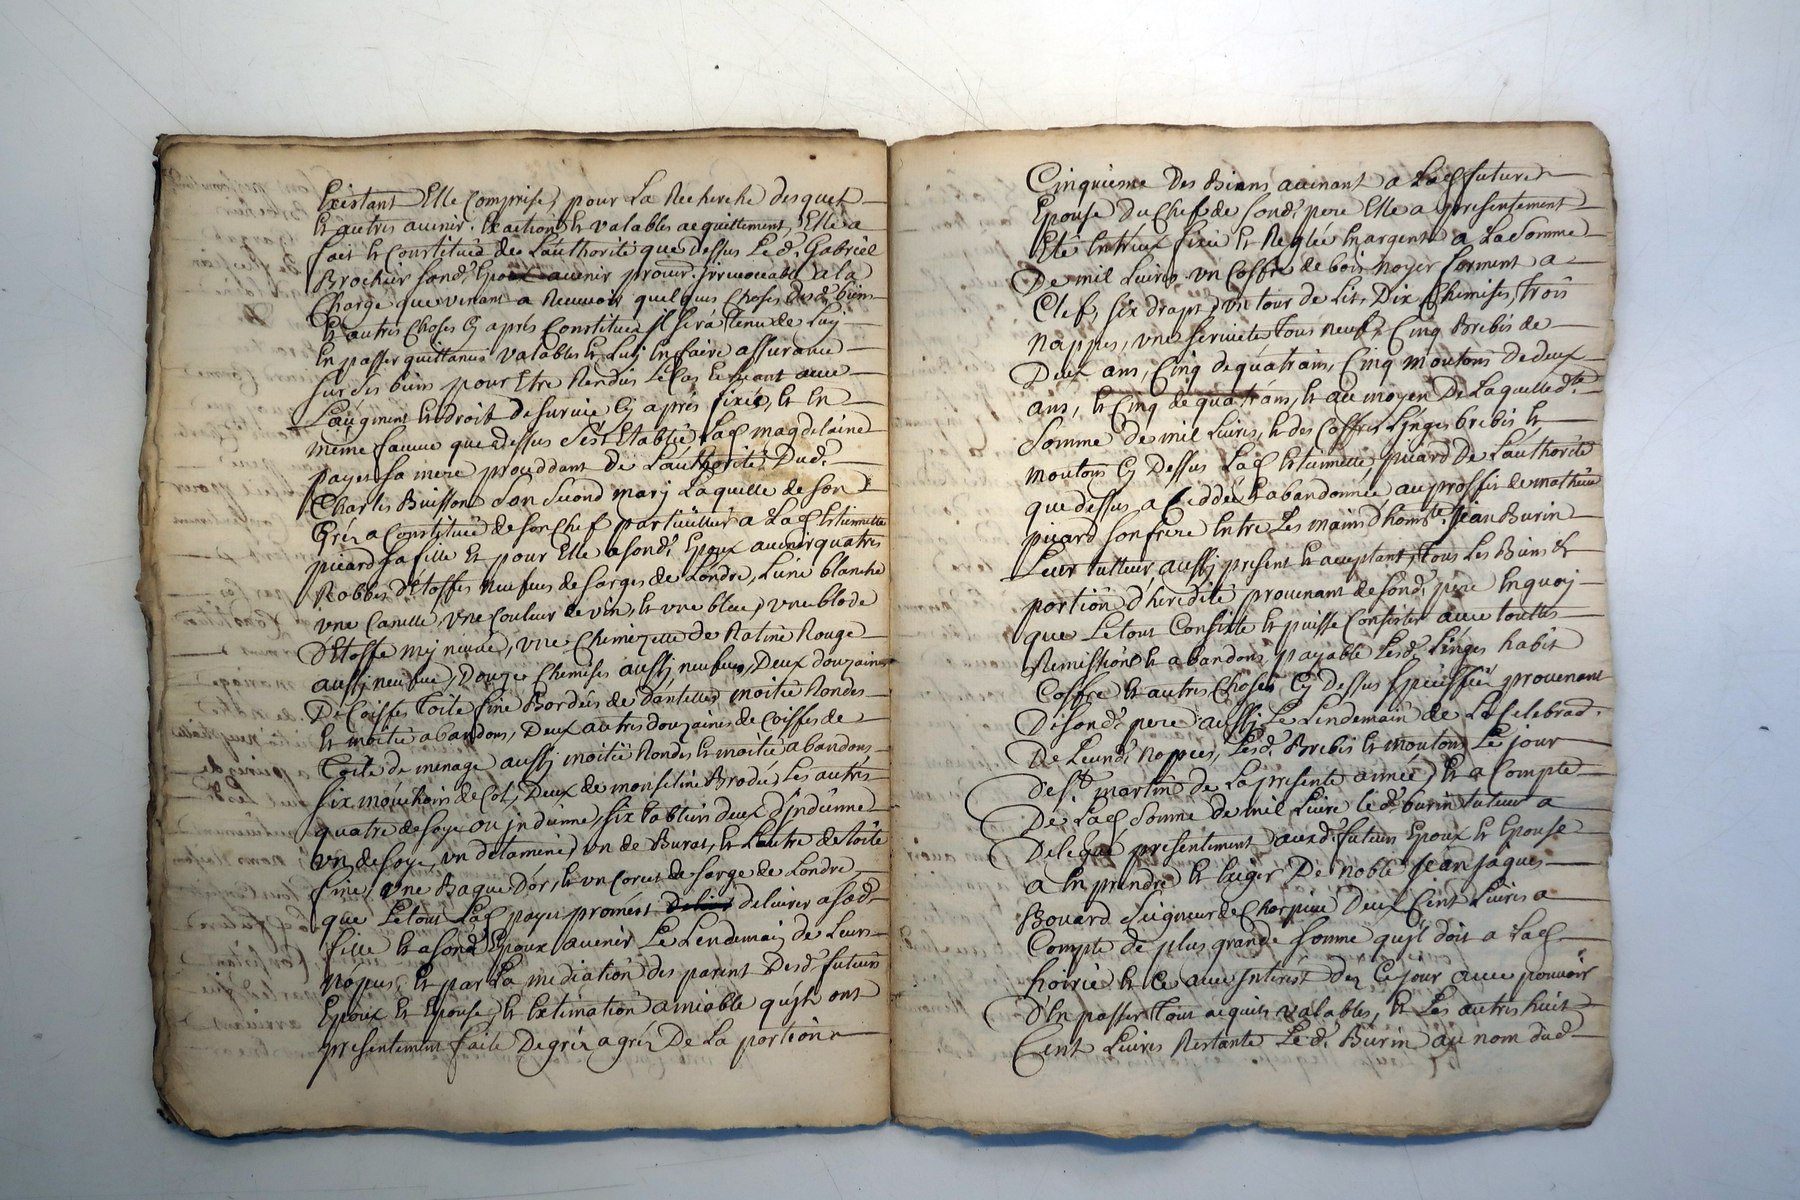 Existant Elle Comprise, pour La Recherche desquels
Et autres avenir Exaction Et valables acquittement, Elle a
fait Et Constitué de L'authorité que Dessus Led. Gabriel
Brochier sond. Epoux avenir procur. irrevocable a la
Charge que venant a Recevoir quelques Choses desd. biens
Et autres Choses Cy aprés Constitués Il sera tenu de Luy
En passer quittances valables Et Luy En faire assurance
sur ses biens pour Etre Rendus Le Cas Echeant avec
L'augment Et droit de survie Cy aprés fixés, Et En
méme faveur que dessus s'est Etablie Lad. magdelaine
payen sa mere procedant de L'authorité Dud.
Charles Buisson son second mary Laquelle de son
Gréz a Constitué de son Chef particullier a Lad. Estiennette
picard sa fille Et pour Elle a sond. Epoux avenir quatres
Robbes d'Etoffes neufves de sarges de Londre, L'une blanche
une Canelle, une Couleur de vin, Et une bleue, une
d'Etoffe my neuve, une Chemizette de Ratine Rouge
aussy neufve, Douzes Chemises aussy neufves, Deux douzaines
De Coiffes Toile fine Bordées de Dantelles, moitié Rondes
Et moitié abandons, Deux autres douzaines de Coiffes de
Toile de menage aussy moitié Rondes Et moitié abandons
six mouchoirs de Col, Deux de monseline Brodée Les autres
quatre de soye ou jndienne, six tabliers deux d'jndienne
un de soye, un d'etamine, un de Burat, Et L'autre de toile
fine, une Bague D'or, Et un Corset de sarge de Londre
que Le tout Lad. payen promest delivrer a sad.
fille Et a sond. Epoux avenir Le Lendemain de Leurs
nopces, Et par La mediation des parent Desd. futurs
Epoux Et Epouse, Et Extimation amiable qu'ils ont
presentement faite De gréz a gréz De La portion
Cinquiesme Des Biens avenant a Lad. future
Epouse Du Chef de sond. pere Elle a presentement
Eté Entreux fixée Et Reglée En argent a La somme
De mil Livres un Coffre de bois noyer fermant a
Clef, six draps, un tour de Lit, Dix Chemises, trois
nappes, une serviette Tous neufs, Cinq Brebis de
Deux ans, Cinq de quatrans, Cinq moutons de deux
ans, Et Cinq de quatrans, Et au moyen De Laquelled.te
somme de mil Livres, Et des Coffres Linges brebis Et
moutons Cy Dessus Lad. Estiennette picard De L'authorité
que dessus a Ceddée Et abandonnée au proffit de mathieu
picard son frere Entre Les mains d'hon.te Jean Burin
Leur tutteur aussy present Et acceptant, Tous Les Biens Et
portion d'heredité provenant de sond. pere En quoy
que Le tout Consiste Et puisse Consister avec touttes
Remissions Et abandons, payable Lesd. Linges habit
Coffre Et autres Choses Cy Dessus speciffiés provenant
De sond. pere aussy Le Lendemain de La Celebrad.
De Leursd. nopces, Lesd. Brebis Et moutons Le jour
De s.t martin de La presente année, Et a Compte
De Lad. somme de mil Livre led. burin tuteur a
Delegué presentement auxd. futurs Epoux Et Epouse
a En prendre Et Exiger De noble Jean Jaques
Bouard seigneur de Deux Cent Livres a
Compte de plus grande somme qu'il doit a Lad.
hoirie Et Ce avec Interest dez Ce jour avec pouvoir
D'En passer Tous acquits valables, Et Les autres huit
Cent Livres Restante Led. Burin au nom dud.